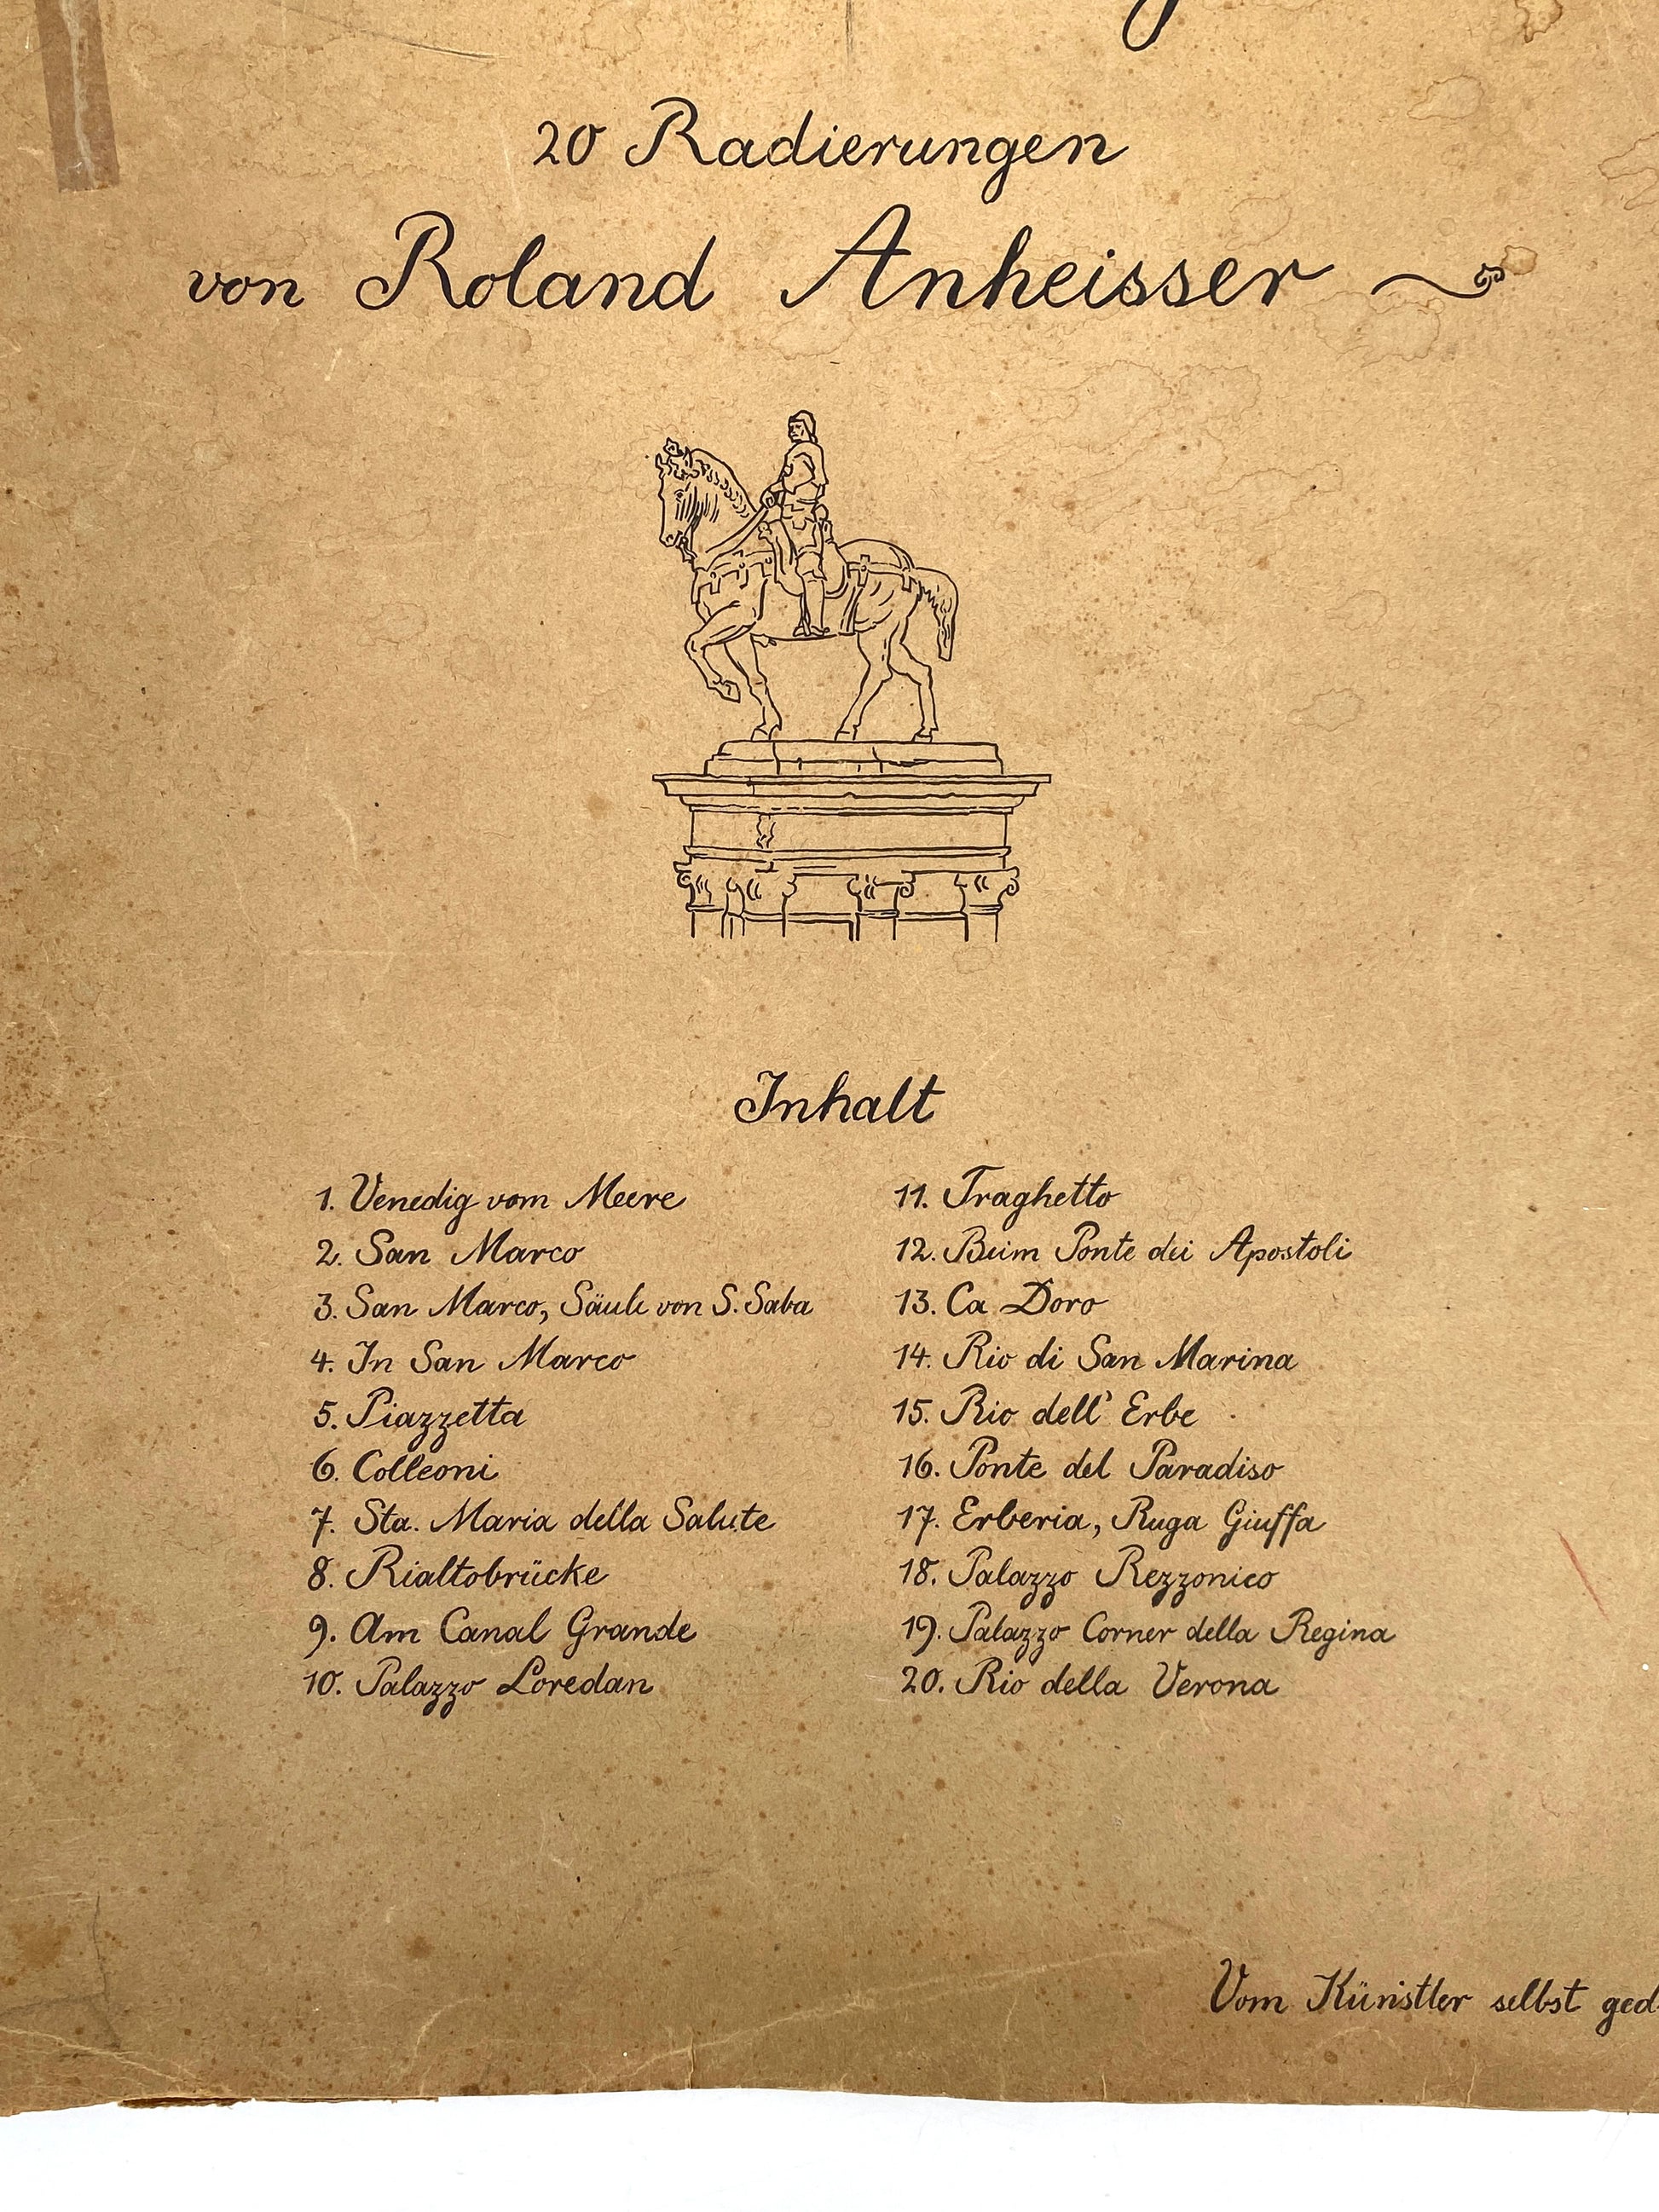 20 Radierungen
von Roland Anheisser
Inhalt
1. Venedig vom Meere
2. San Marco
3. San Marco, Säule von S. Saba
4. In San Marco
5. Piazzetta
6. Colleoni
7. Sta. Maria della Salute
8. Rialtobrücke
9. Am Canal Grande
10. Palazzo Loredan
11. Traghetto
12. Beim Ponte dei Apostoli
13. Ca Doro
14. Rio di San Marina
15. Rio dell' Erbe
16. Ponte del Paradiso
17. Erberia, Ruga Giuffa
18. Palazzo Rezzonico
19. Palazzo Corner della Regina
20. Rio della Verona
Vom Künstler selbst ged